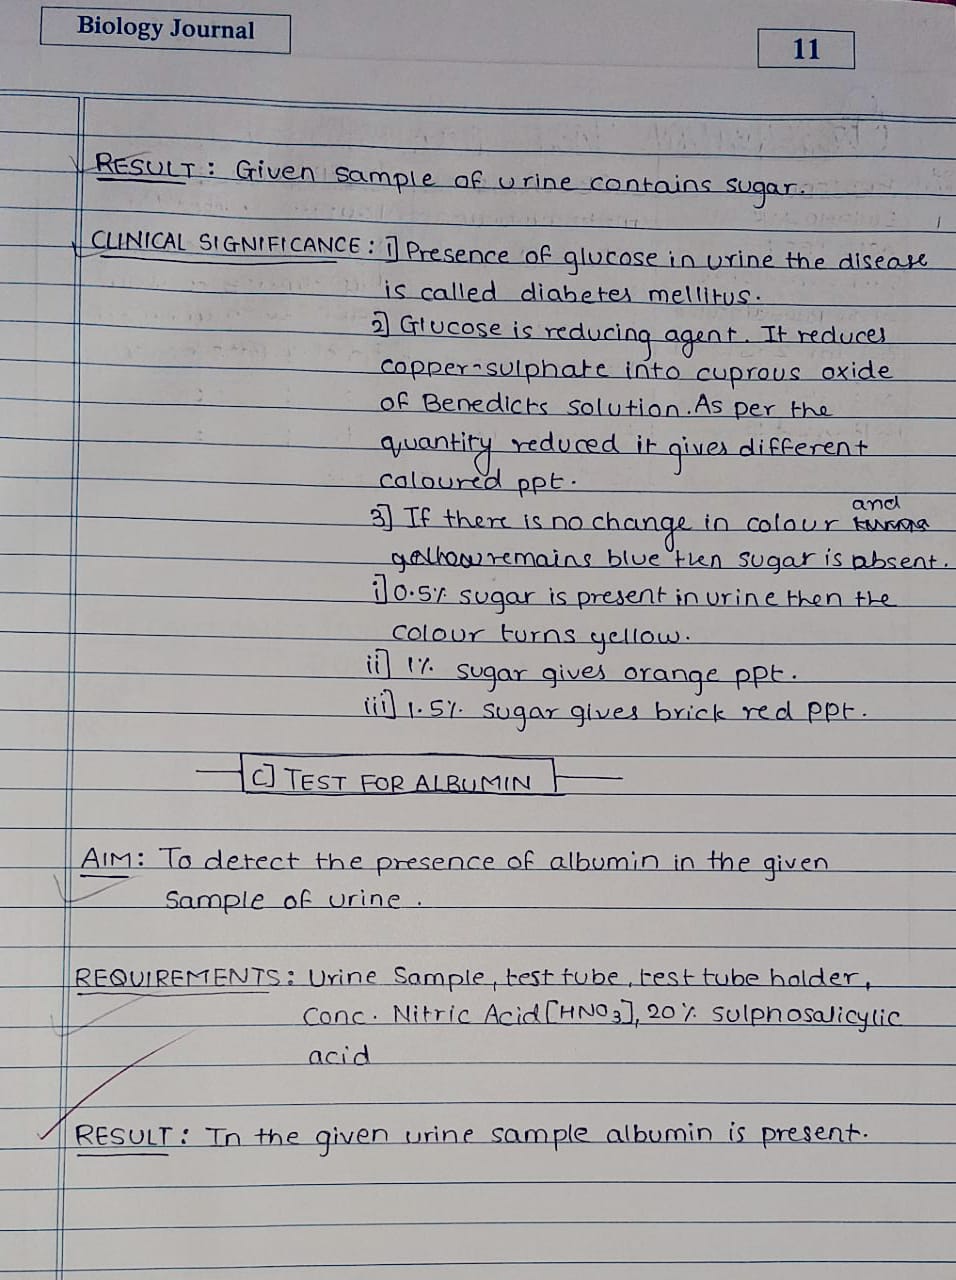 Biology Journal
11
RESULT: Given sample of urine contains sugar.
CLINICAL SIGNIFICANCE: 1] Presence of glucose in urine the disease
is called diabetes mellitus.
2] Glucose is reducing agent. It reduces
copper-sulphate into cuprous oxide
of Benedicts solution. As per the
quantity reduced it gives different
coloured ppt.
and
3] If there is no change in colour turns
yellow remains blue then sugar is absent.
i] 0.5% sugar is present in urine then the
colour turns yellow.
ii] 1% sugar gives orange ppt.
iii] 1.5% sugar gives brick red ppt.
C] TEST FOR ALBUMIN
AIM: To detect the presence of albumin in the given
sample of urine.
REQUIREMENTS: Urine Sample, test tube, test tube holder,
Conc. Nitric Acid [HNO3], 20% sulphosalicylic
acid
RESULT: In the given urine sample albumin is present.